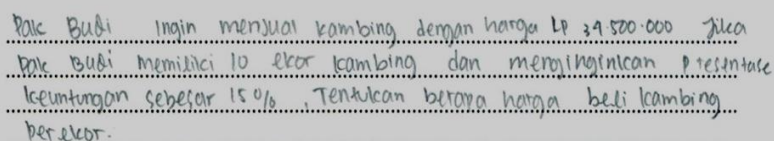 Pak Budi Ingin menjual kambing dengan harga Rp 34.500.000 Jika
Pak Budi memiliki 10 ekor kambing dan menginginkan presentase
keuntungan sebesar 15%. Tentukan berapa harga beli kambing
per ekor.